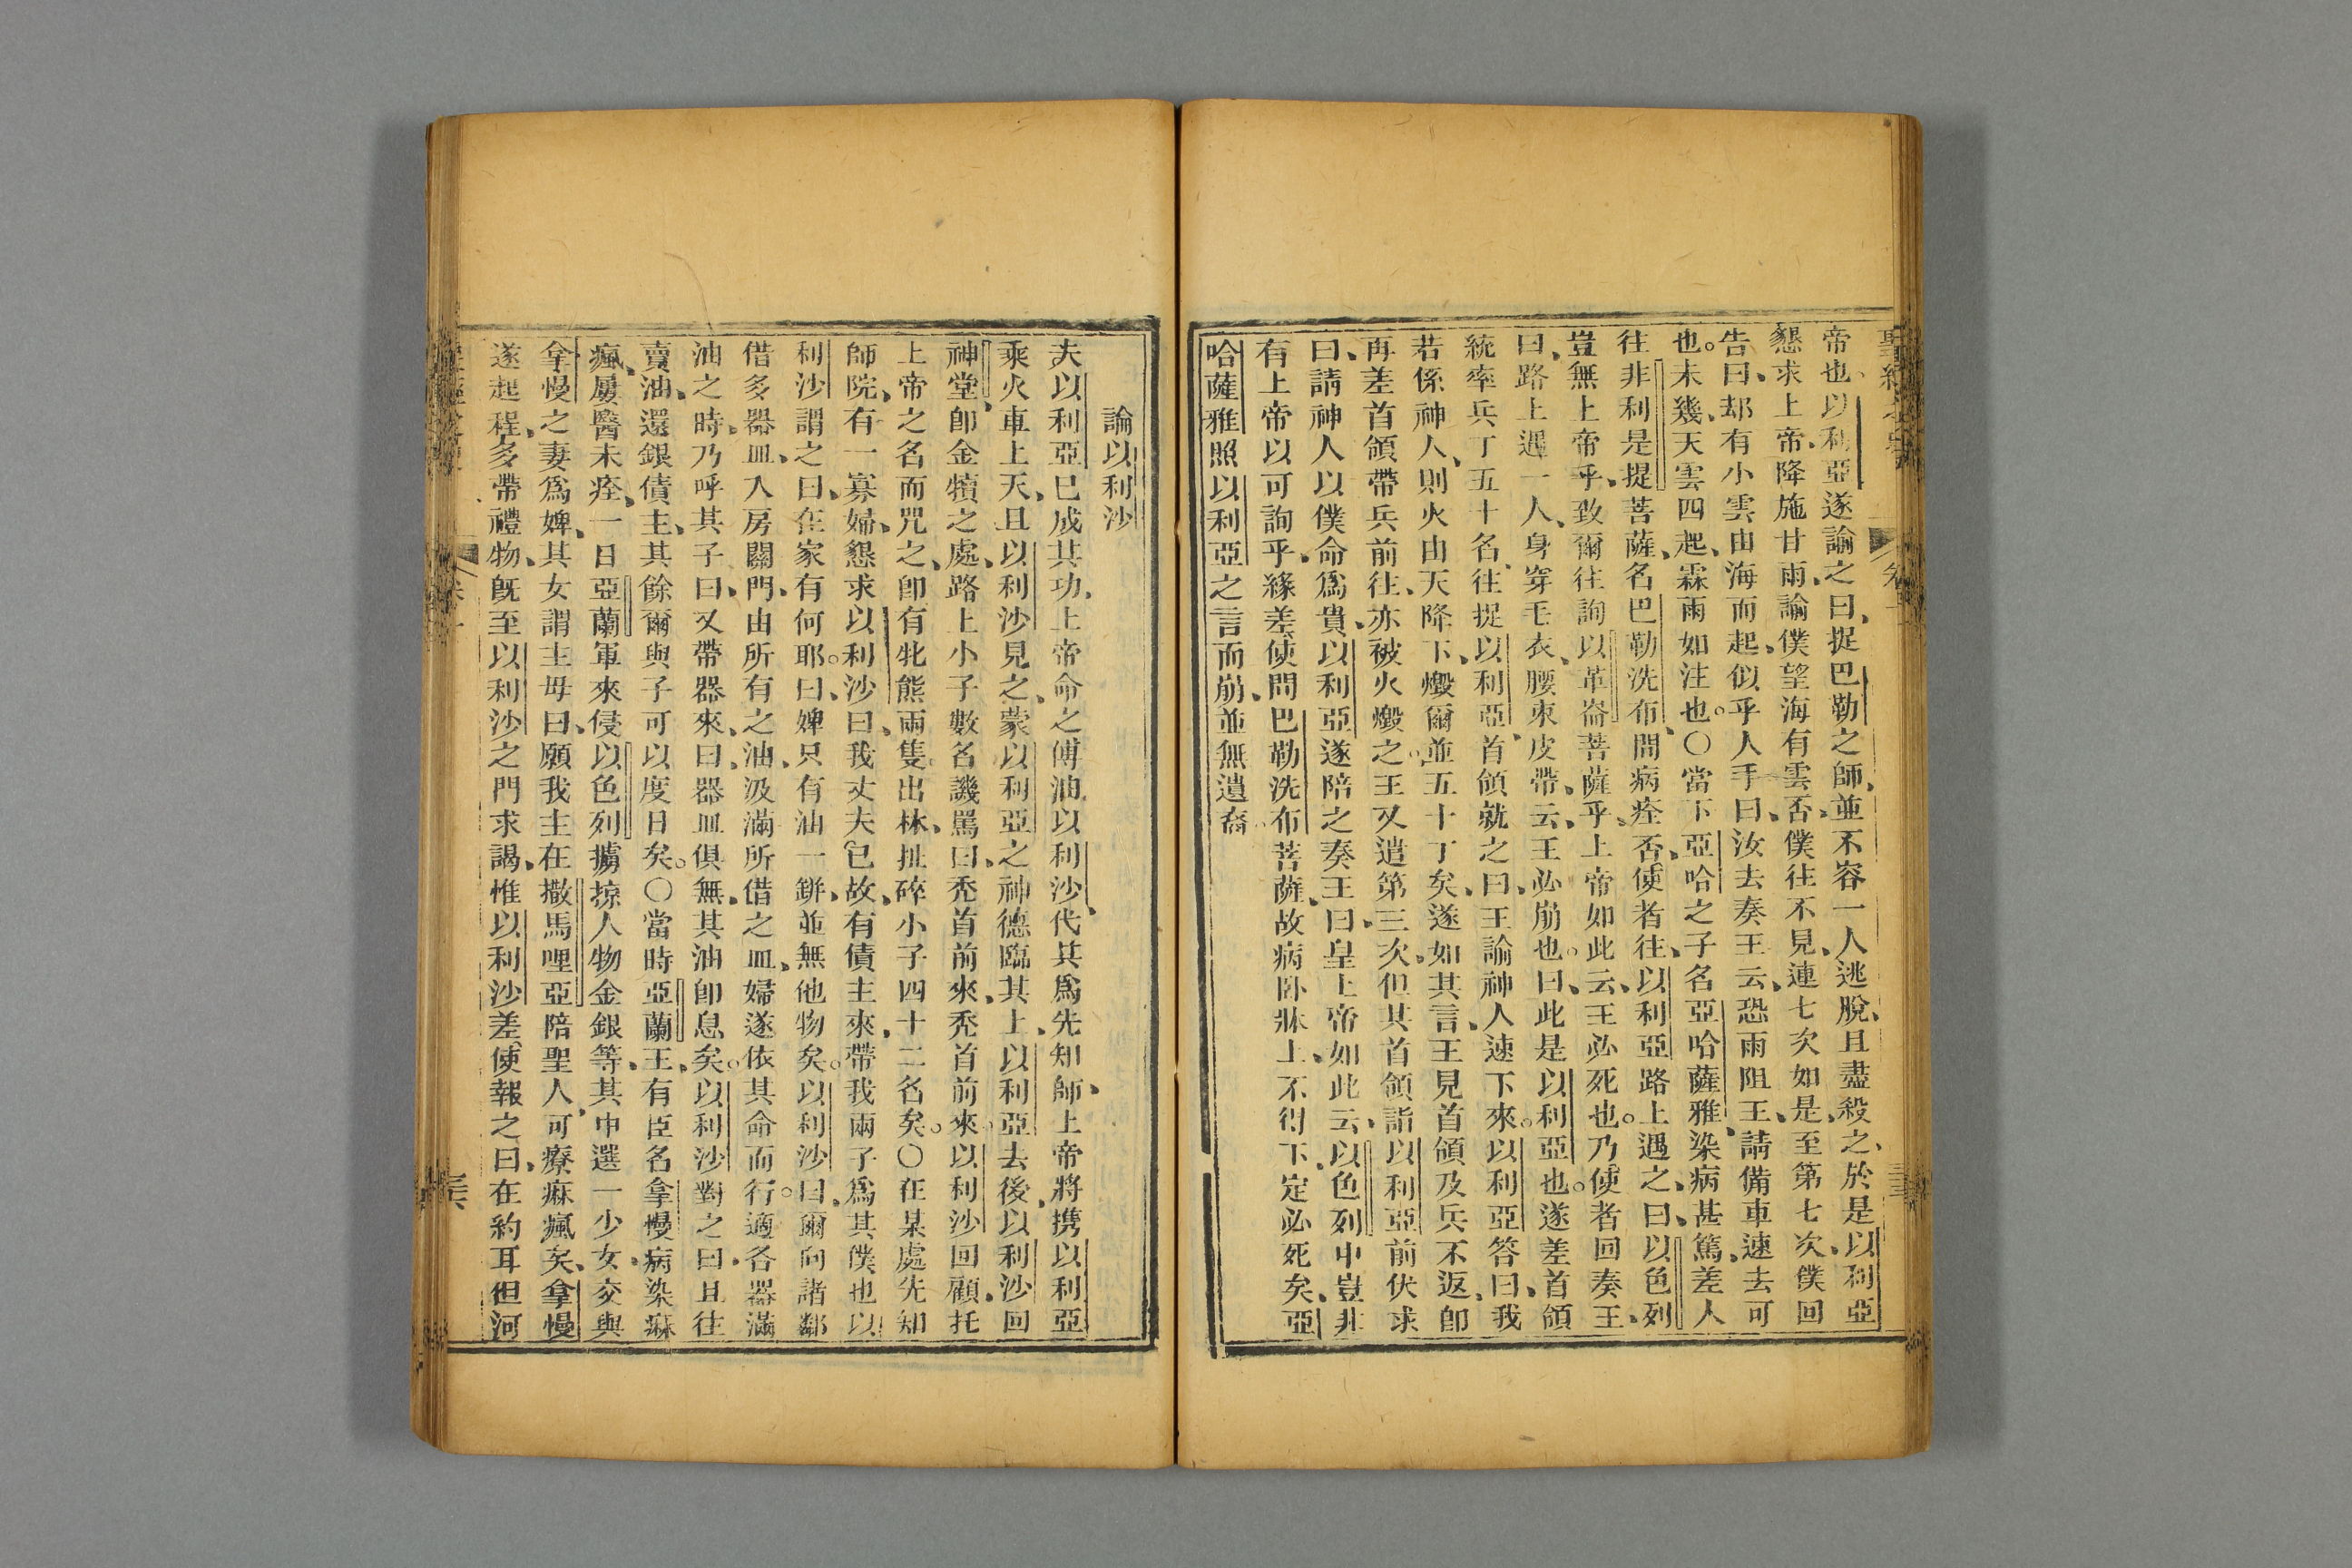 帝也、以利亞遂諭之曰、捉巴勒之師、並不容一人逃脫、且盡殺之、於是以利亞
懇求上帝、降施甘雨、諭僕望海有雲否、僕往不見、連七次如是、至第七次、僕回
告曰、却有小雲由海而起、似乎人手、曰、汝去奏王云、恐雨阻王、請備車速去可
也。未幾、天雲四起、霖雨如注也。〇當下亞哈之子名亞哈薩雅、染病甚篤、差人
往非利是提菩薩、名巴勒洗布、問病痊否、使者往、以利亞路上遇之、曰、以色列
豈無上帝乎、致爾往詢以革崙菩薩乎、上帝如此云、王必死也。乃使者回奏王、
曰、路上遇一人、身穿毛衣、腰束皮帶、云、王必崩也。曰、此是以利亞也。遂差首領
統率兵丁五十名、往捉以利亞、首領就之曰、王諭神人速下來。以利亞答曰、我
若係神人、則火由天降下、燬爾並五十丁矣、遂如其言、王見首領及兵不返、卽
再差首領帶兵前往、亦被火燬之。王又遣第三次、但其首領詣以利亞前伏求
曰、請神人以僕命爲貴、以利亞遂陪之奏王、曰、皇上帝如此云、以色列中豈非
有上帝以可詢乎、緣差使問巴勒洗布菩薩、故病卧牀上、不得下、定必死矣、亞
哈薩雅照以利亞之言而崩、並無遺裔。
論以利沙
夫以利亞已成其功、上帝命之傅油以利沙、代其爲先知師、上帝將携以利亞
乘火車上天、且以利沙見之、蒙以利亞之神德臨其上、以利亞去後、以利沙回
神堂、卽金犢之處、路上小子數名譏罵曰、禿首前來、禿首前來。以利沙回顧、托
上帝之名而咒之、卽有牝熊兩隻出林、扯碎小子四十二名矣。〇在某處先知
師院、有一寡婦、懇求以利沙曰、我丈夫已故、有債主來、帶我兩子爲其僕也、以
利沙謂之曰、在家有何耶。曰、婢只有油一缾、並無他物矣。以利沙曰、爾向諸鄰
借多器皿、入房關門、由所有之油、汲滿所借之皿、婦遂依其命而行。適各器滿
油之時、乃呼其子曰、又帶器來、曰、器皿俱無、其油卽息矣。以利沙對之曰、且往
賣油、還銀債主、其餘爾與子可以度日矣。〇當時亞蘭王、有臣名拿慢、病染痳
瘋、屢醫未痊、一日亞蘭軍來侵以色列、擄掠人物金銀等、其中選一少女、交與
拿慢之妻爲婢、其女謂主母曰、願我主在撒馬哩亞陪聖人、可療痳瘋矣、拿慢
遂起程、多帶禮物、旣至以利沙之門求謁、惟以利沙差使報之曰、在約耳但河